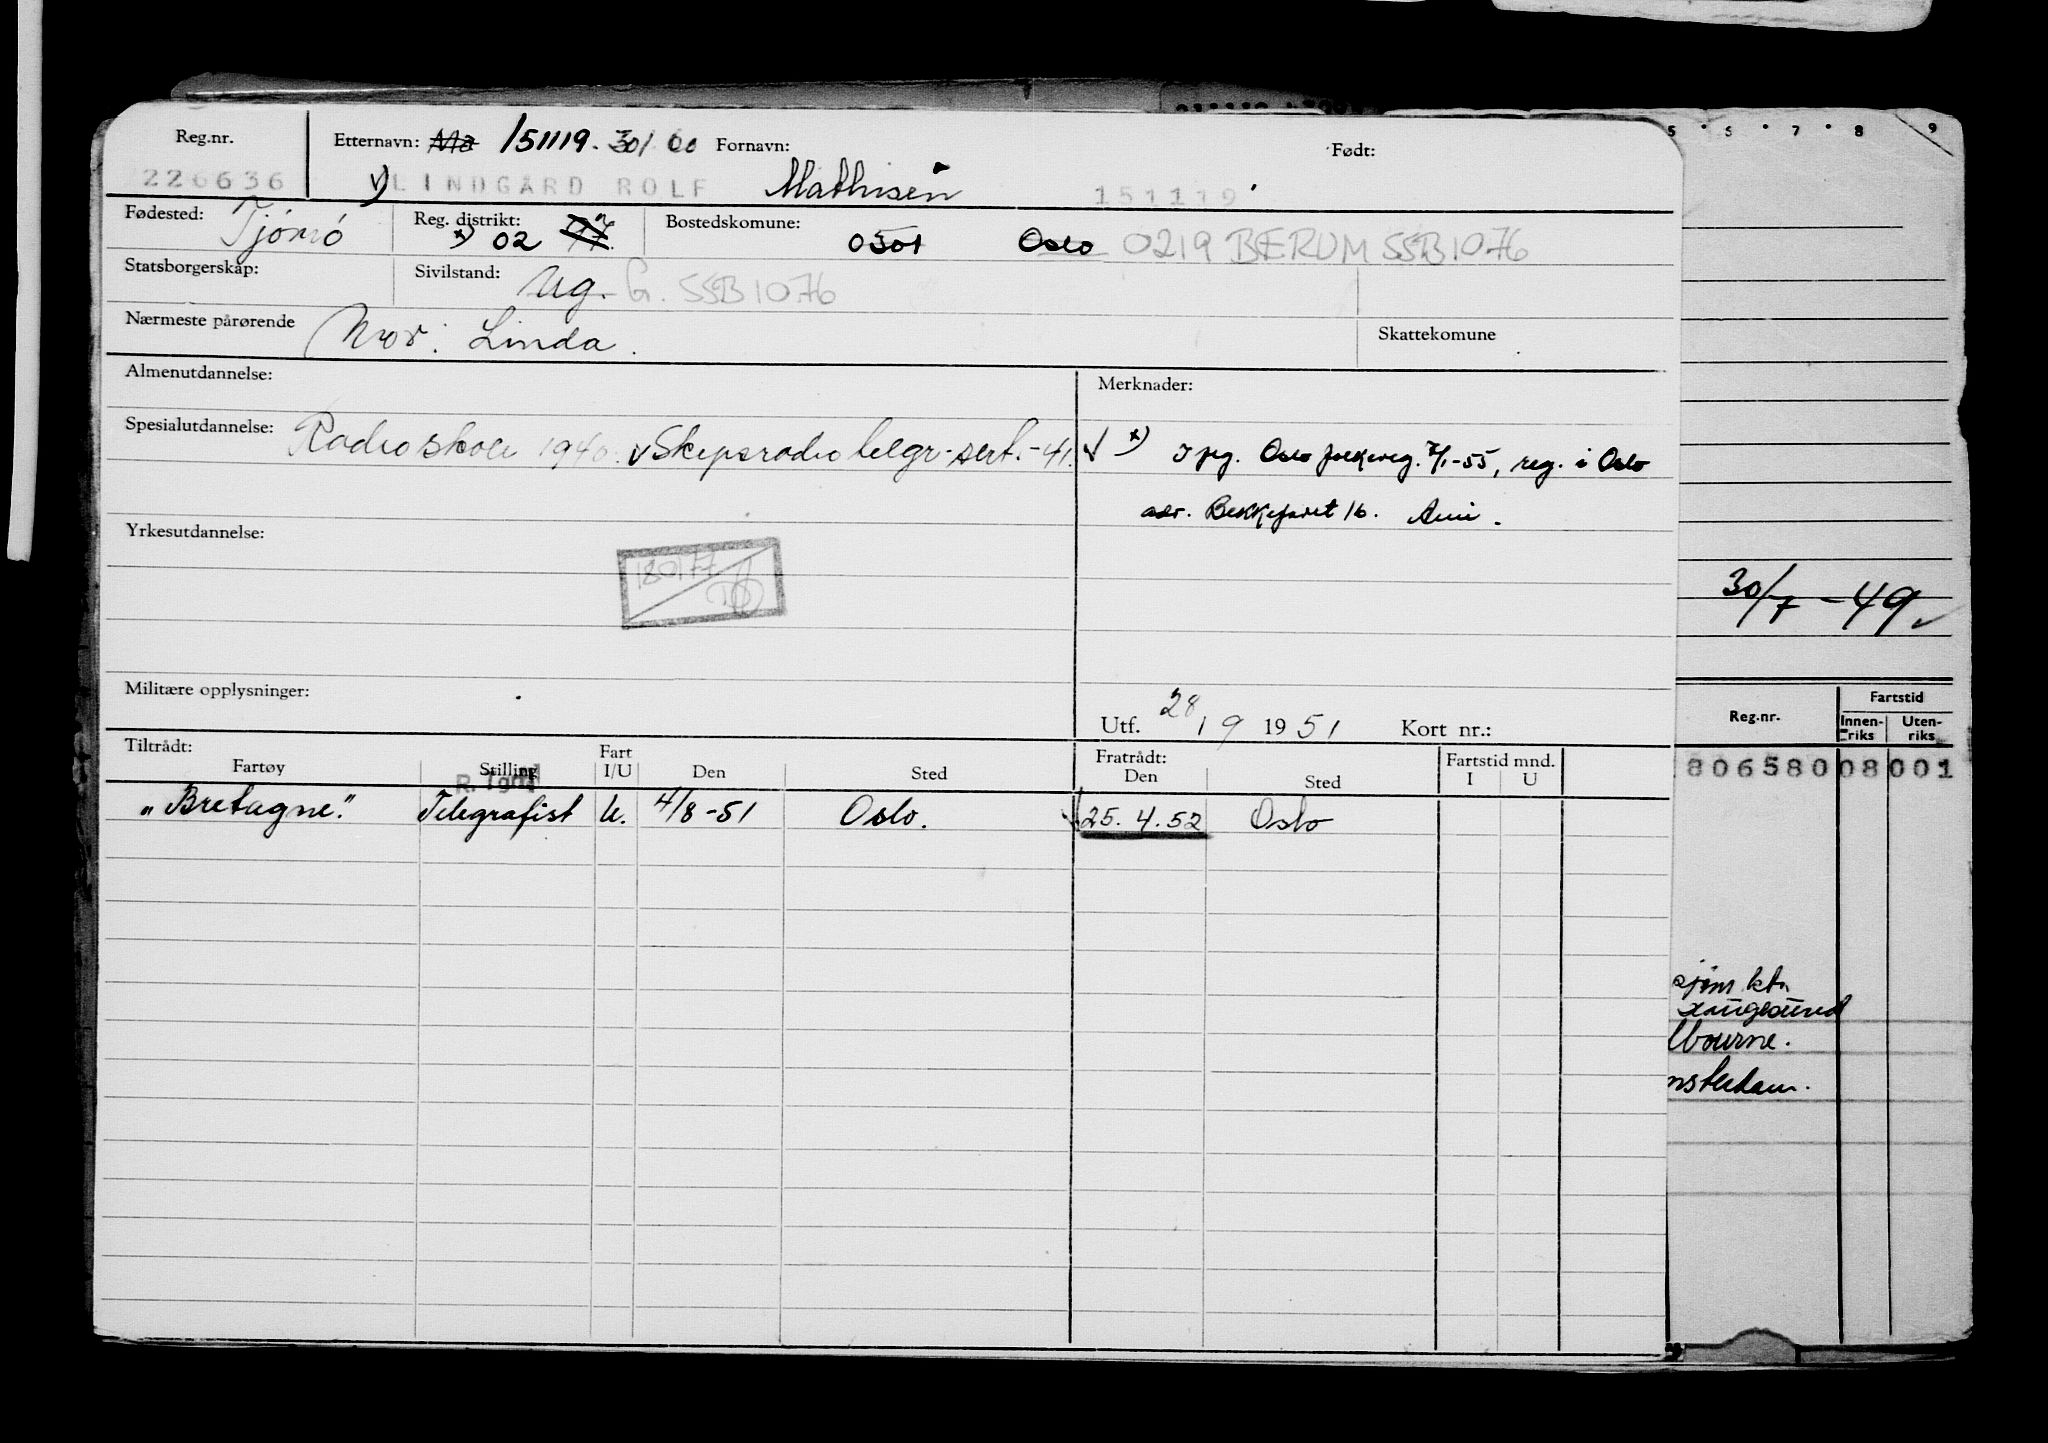 Reg.nr. Etternavn: Ma 151119. 301 00 Fornavn: Født:
226636 v) LINDGÅRD ROLF Mathisen 151119
Fødested: Tjømö Reg. distrikt: x) 02 Bostedskomune: 0301 Oslo 0219 BERUM SSB1076
Statsborgerskap: Sivilstand: Ug. G. SSB1076
Nærmeste pårørende Mor: Linda. Skattekomune
Almenutdannelse: Merknader:
Spesialutdannelse: Radioskole 1940. v Skipsradiotelgr.-sert.-41. v x) I flg. Oslo folkereg. 7/1-55, reg. i Oslo
adr. Bekkefaret 16.
Yrkesutdannelse:
180177
Militære opplysninger:
Utf. 28/9 1951 Kort nr.:
Tiltrådt: Fratrådt:
Fartøy Stilling Fart I/U Den Sted Den Sted Fartstid mnd. I U
R. Tgrf
"Bretagne". Telegrafist U. 4/8-51 Oslo. 25.4.52 Oslo
5 6 7 8 9
30/7-49
Reg.nr. Fartstid
Innen-riks Uten-riks
806580 08 001
sjøm ktr
Haugesund
lbourne.
msterdam.